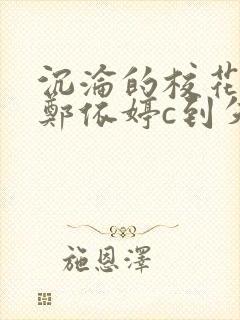 沉淪的校花
鄭依婷c到
施恩澤